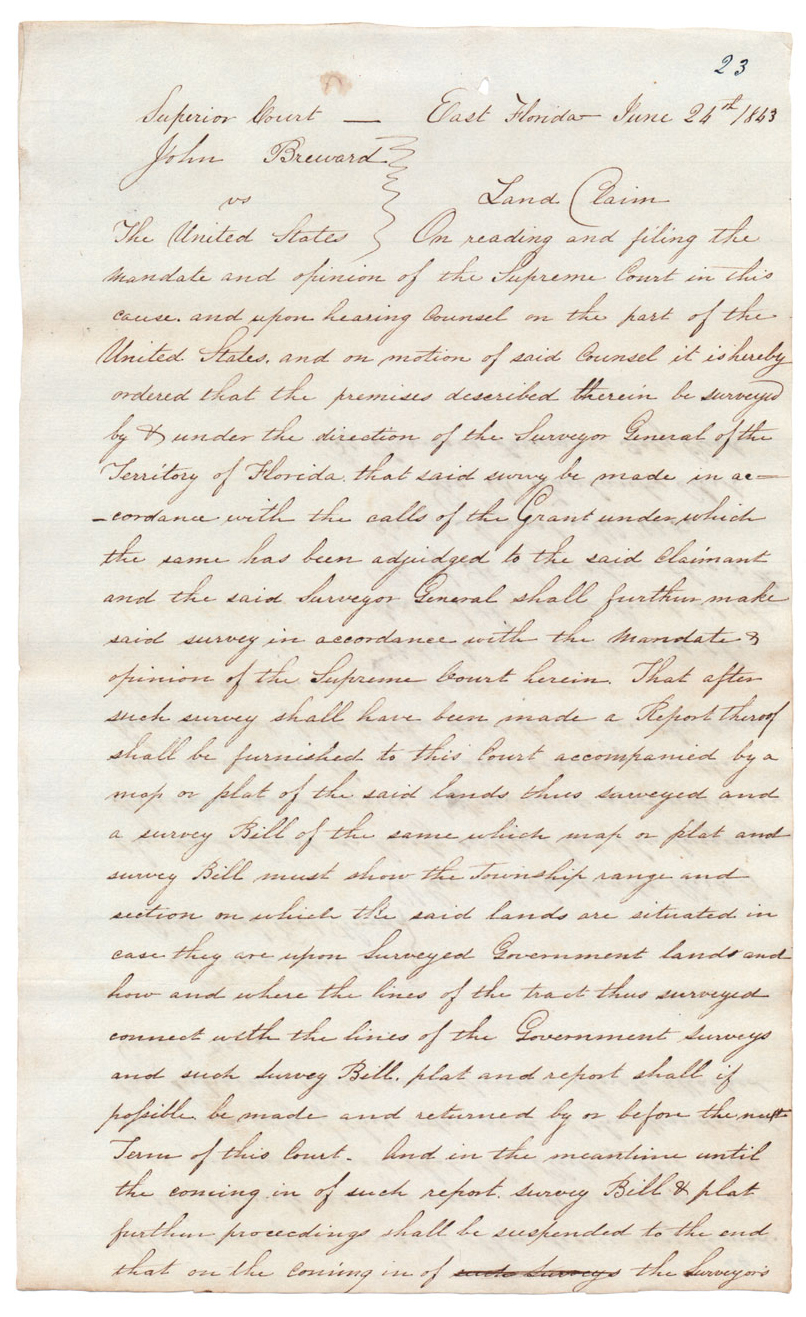 23
Superior Court — East Florida June 24th 1843
John Breward
vs Land Claim
The United States On reading and filing the
mandate and opinion of the Supreme Court in this
cause. and upon hearing Counsel on the part of the
United States. and on motion of said Counsel it is hereby
ordered that the premises described therein be surveyed
by & under the direction of the Surveyor General of the
Territory of Florida. that said survy be made in ac-
-cordance with the calls of the Grant under which
the same has been adjudged to the said Claimant
and the said Surveyor General shall further make
said survey in accordance with the mandate &
opinion of the Supreme Court herein. That after
such survey shall have been made a Report thereof
shall be furnished to this Court accompanied by a
map or plat of the said lands thus surveyed and
a survey Bill of the same which map or plat and
survey Bill must show the Township range and
section on which the said lands are situated in
case they are upon Surveyed Government lands and
how and where the lines of the tract thus surveyed
connect with the lines of the Government surveys
and such Survey Bill. plat and report shall if
possible be made and returned by or before the next
Term of this Court. And in the meantime until
the coming in of such report. survey Bill & plat
further proceedings shall be suspended to the end
that on the coming in of such surveys the Surveyors